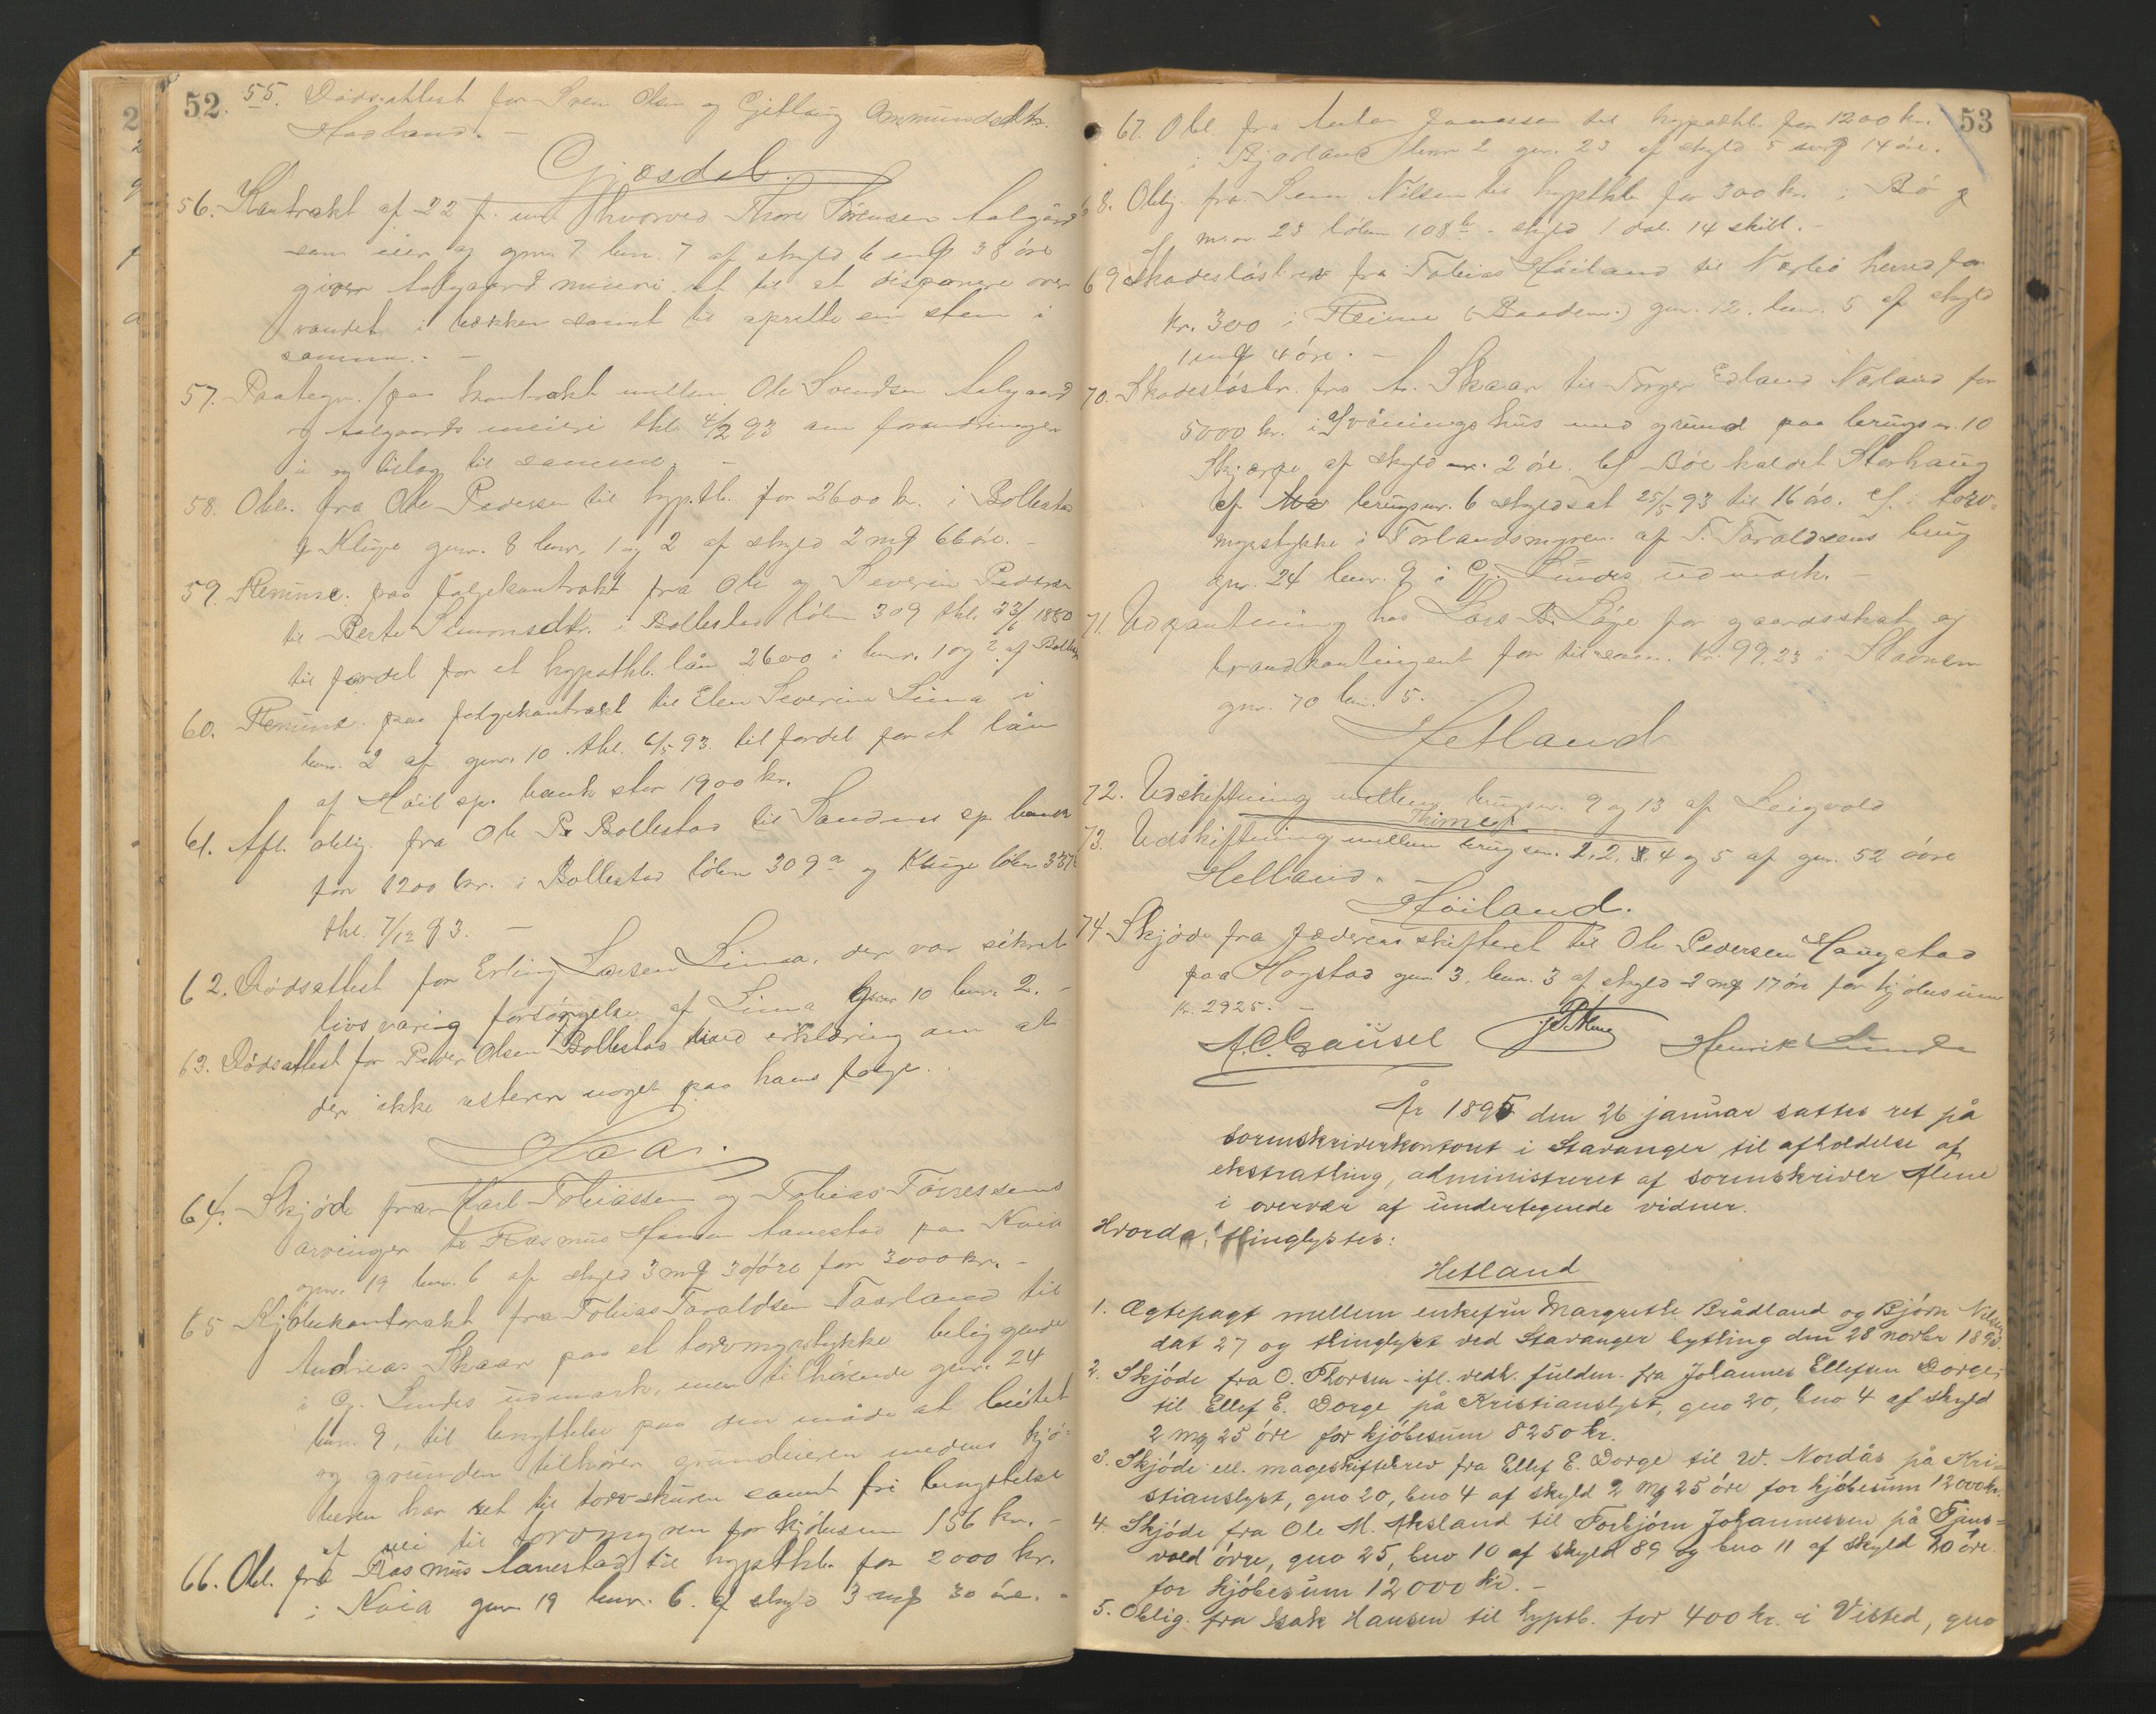 52.
55. Dödsattest for Sven Olsen og Gjetlaug Ommundsdtr.
Haaland. –
Gjesdal.
56. Kontrakt af 22 f. md. hvorved Thore Sörensen Aalgård
som eier af gnr. 7 bnr. 7 af skyld 6 mrk 38 öre
giver Aalgaard meieri ret til at disponere over
vandet i bækken samt til oprette en stem i
samme. –
57. Paategn. paa kontrakt mellem Ole Svendsen Aalgaard
og Aalgaards meieri thl. 4/2 93 om forandringer
i og tillæg til samme. –
58. Obl. fra Ole Pedersen til hypthb. for 2600 kr. i Bollestad
og Kluge gnr. 8 bnr. 1 og 2 af skyld 2 mrk 66 öre. –
59. Renunc. paa folgekontrakt fra Ole og Severin Pedersen
til Berte Simonsdtr. i Bollestad löbn 309 thl. 23/6 1880
til fordel for et hypothb. lån 2600 i bnr. 1 og 2 af Bollestad
60. Renunc. paa folgekontrakt til Elen Severine Lima i
bnr. 2 af gnr. 10 thl. 6/5 93 til fordel for et lån
af Höil. sp. bank stor 1900 kr.
61. Afl. oblig. fra Ole P. Bollestad til Sandnes sp. bank
for 1200 kr. i Bollestad löbn 309a og Kluge löbn 337b
thl. 7/12 93. –
62. Dödsattest for Erling Larsen Lima, der var sikret
livsvarig forsörgelse af Lima gnr 10 bnr. 2. –
63. Dödsattest for Peder Olsen Bollestad med erklæring om at
der ikke resterer noget paa hans folge.
Haa.
64. Skjöde fra Karl Tobiassen og Tobias Torressens
arvinger til Rasmus Hansen Aanestad paa Kvia
gnr. 19 bnr. 6 af skyld 3 mrk 30 öre for 3000 kr. –
65 Kjöbekontrakt fra Tobias Taraldsen Taarland til
Andreas Skaar paa et torvmyrstykke beliggende
i G. Lindes udmark, men tilhörende gnr. 24
bnr. 9, til benyttelse paa den måde at beitet
og grunden tilhörer grundeieren medens kjö-
beren har ret til torvskuren samt fri benyttelse
af vei til torvmyren for kjöbesum 156 kr. –
66. Obl. fra Rasmus Aanestad til hypthb. for 2000 kr.
i Kvia gnr 19 bnr. 6. af skyld 3 mrk 30 öre. –
53
67. Obl. fra Anton Jonassen til hypothb. for 1200 kr.
i Bjorland bnr 2 gnr. 23 af skyld 5 mrk 14 öre.
68. Oblg. fra Sven Nilsen til hypthb. for 300 kr. i Bö
af mnr. 23 löbn 108b – skyld 1 dal. 14 skill. –
69 Skadeslösbrev fra Tobias Höiland til Nærbö herred for
kr. 300 i Reime (Baadsm.) gnr. 12. bnr. 5 af skyld
1 mrk 4 öre. –
70. Skadeslösbr. fra A. Skaar til Torger Edland Nærland for
5000 kr. i Vaaningshus med grund paa brugsnr. 10
Skjærpe af skyld mr. 2 öre. af Böe kaldet Storhaug
af brugsnr. 6 skyldsat 25/5 93 til 16 öre. af torv-
myrstykke i Torlandsmyren af T. Taraldsens brug
gnr. 24 bnr. 9 i Gj. Lindes udmark. –
71. Udpantning hos Lars B. Löge for gaardsskat og
brandkontingent for tilsam. kr. 99.23 i Stavnem
gnr. 70 bnr. 5. –
Hetland
72. Udskiftning mellem brugsnr. 9 og 13 af Leigvold
Thime.
73. Udskiftning mellem brugsnr. 1, 2, 3, 4 og 5 af gnr. 52 övre
Helland. –
Höiland.
74. Skjöde fra skifteret til Ole Pedersen Haugstad
paa Hogstad gnr. 3. bnr. 3 af skyld 2 mrk 17 öre for kjöbesum
kr. 2925. –
A. C. Gausel Henrik Lunde
År 1895 den 26 januar sattes ret på
sorenskriverkontoret i Stavanger til afholdelse af
ekstrathing, administreret af sorenskriver Alme
i overvær af undertegnede vidner.
Hvorda thinglystes:
Hetland
1. Ægtepagt mellem enkefru Margrethe Brådland og Bjórn Nilsen
dat 27 og thinglyst ved Stavanger bything den 28 novbr 1893.
2. Skjóde fra O. Thorsen – ifl. vedh. fuldm. fra Johannes Ellefsen Dorge,
til Ellef E. Dorge på Kristianslyst, gno 20, bno 4 af skyld
2 mg 25 óre for kjóbesum 8250 kr.
3. Skjóde ell. mageskiftebrev fra Ellef E. Dorge til W. Nordås på Kri-
stianslyst, gno 20, bno 4 af skyld 2 mg 25 óre for kjóbesum 12000 kr.
4. Skjóde fra Ole M. Aksland til Torbjórn Johannessen på Tjens-
vold óvre, gno 25, bno 10 af skyld 89 og bno 11 af skyld 20 óre
for kjóbesum 12000 kr. –
5. Oblig. fra Isak Hansen til hyptb. for 400 kr. i Visted, gno